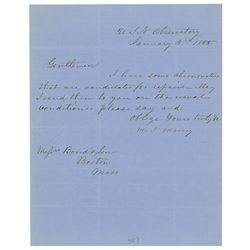 U.S.N. Observatory
January 3d 1855
Gentlemen
I have some chronometers
that are candidates for repairs. May
I send them to you on the usual
conditions? please say and
Oblige Yours truly
M. F. Maury
Messrs Bond & Son
Boston
Mass